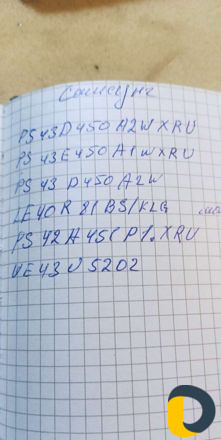 Самсунг
PS 43D450 A2WXRU
PS 43E450 A1WXRU
PS 43 D450 A2W
LE40R 81BS/KLG
PS 42A 451P1.XRU
UE43U5202